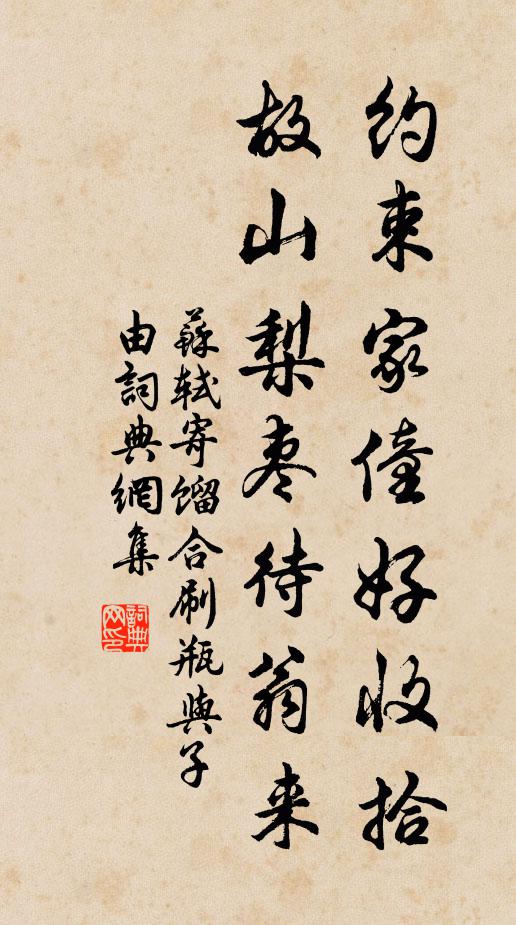 约束家僮好收拾
故山梨枣待翁来
蘇轼寄馏合刷瓶與子
由詞典網集
詞典
网印